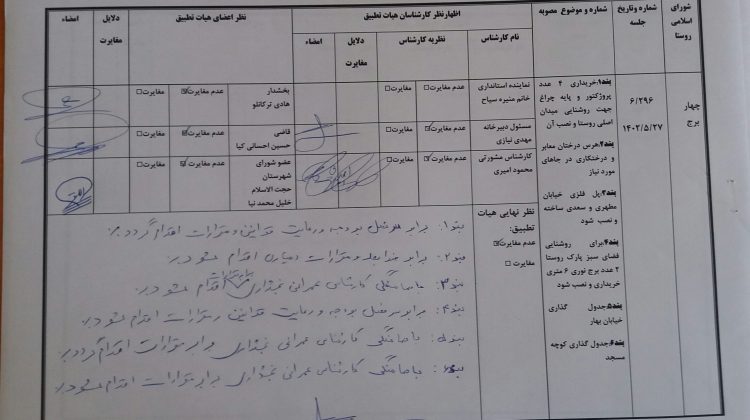 شورای اسلامی روستا
شماره و تاریخ جلسه
شماره و موضوع مصوبه
اظهار نظر کارشناسان هیات تطبیق
نظر اعضای هیات تطبیق
دلایل مغایرت
امضاء
نام کارشناس
نظریه کارشناس
دلایل مغایرت
امضاء
چهار برج
۶/۲۹۶
۱۴۰۲/۵/۲۷
بند۱.خریداری ۴ عدد
پروژکتور و پایه چراغ
جهت روشنایی میدان
اصلی روستا و نصب آن
بند۲.هرس درختان معابر
و درختکاری در جاهای
مورد نیاز
بند۳.پل فلزی خیابان
مطهری و سعدی ساخته
و نصب شود
بند۴.برای روشنایی
فضای سبز پارک روستا
۲ عدد برج نوری ۶ متری
خریداری و نصب شود
بند۵.جدول گذاری
خیابان بهار
بند۶.جدول گذاری کوچه
مسجد
نماینده استانداری
خانم منیره سیاح
عدم مغایرت□ مغایرت□
بخشدار
هادی ترکانلو
عدم مغایرت☑ مغایرت□
مسئول دبیرخانه
مهدی نیازی
عدم مغایرت☑ مغایرت□
قاضی
حسین احسانی کیا
عدم مغایرت☑ مغایرت□
کارشناس مشورتی
محمود امیری
عدم مغایرت☑ مغایرت□
عضو شورای
شهرستان
حجت الاسلام
خلیل محمد نیا
عدم مغایرت☑ مغایرت□
نظر نهایی هیات
تطبیق:
عدم مغایرت☑
مغایرت □
بند۱: برابر بودجه و رعایت قوانین و مقررات اقدام گردد.
بند۲: برابر ضوابط و مقررات اقدام شود.
بند۳: با هماهنگی کارشناس عمرانی بخشداری اقدام شود.
بند۴: برابر سرفصل بودجه و رعایت قوانین و مقررات اقدام شود.
بند۵: با هماهنگی کارشناس عمرانی بخشداری برابر مقررات اقدام گردد.
بند۶: با هماهنگی کارشناس عمرانی بخشداری برابر مقررات اقدام شود.